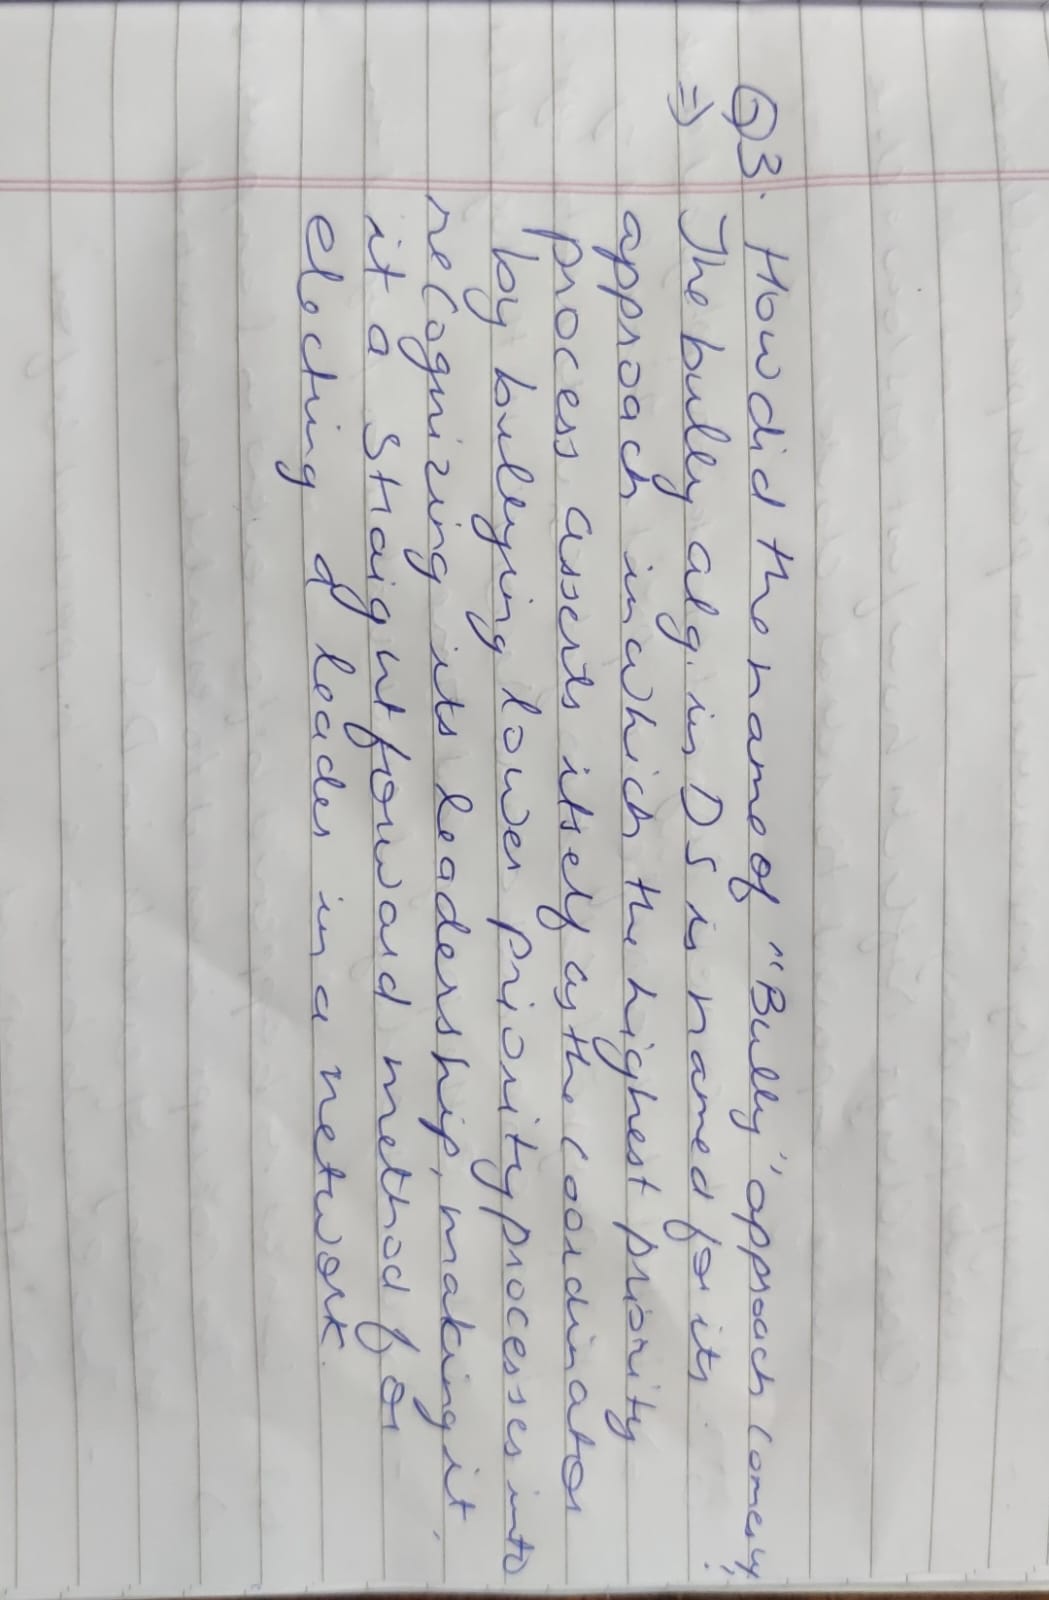 Q3. How did the name of "Bully" approach comes up?
=> The bully alg. in DS is named for its
approach in which the highest priority
process asserts itself as the coordinator
by bullying lower priority processes into
recognizing its leadership, making it,
it a straightforward method for
electing of leader in a network.